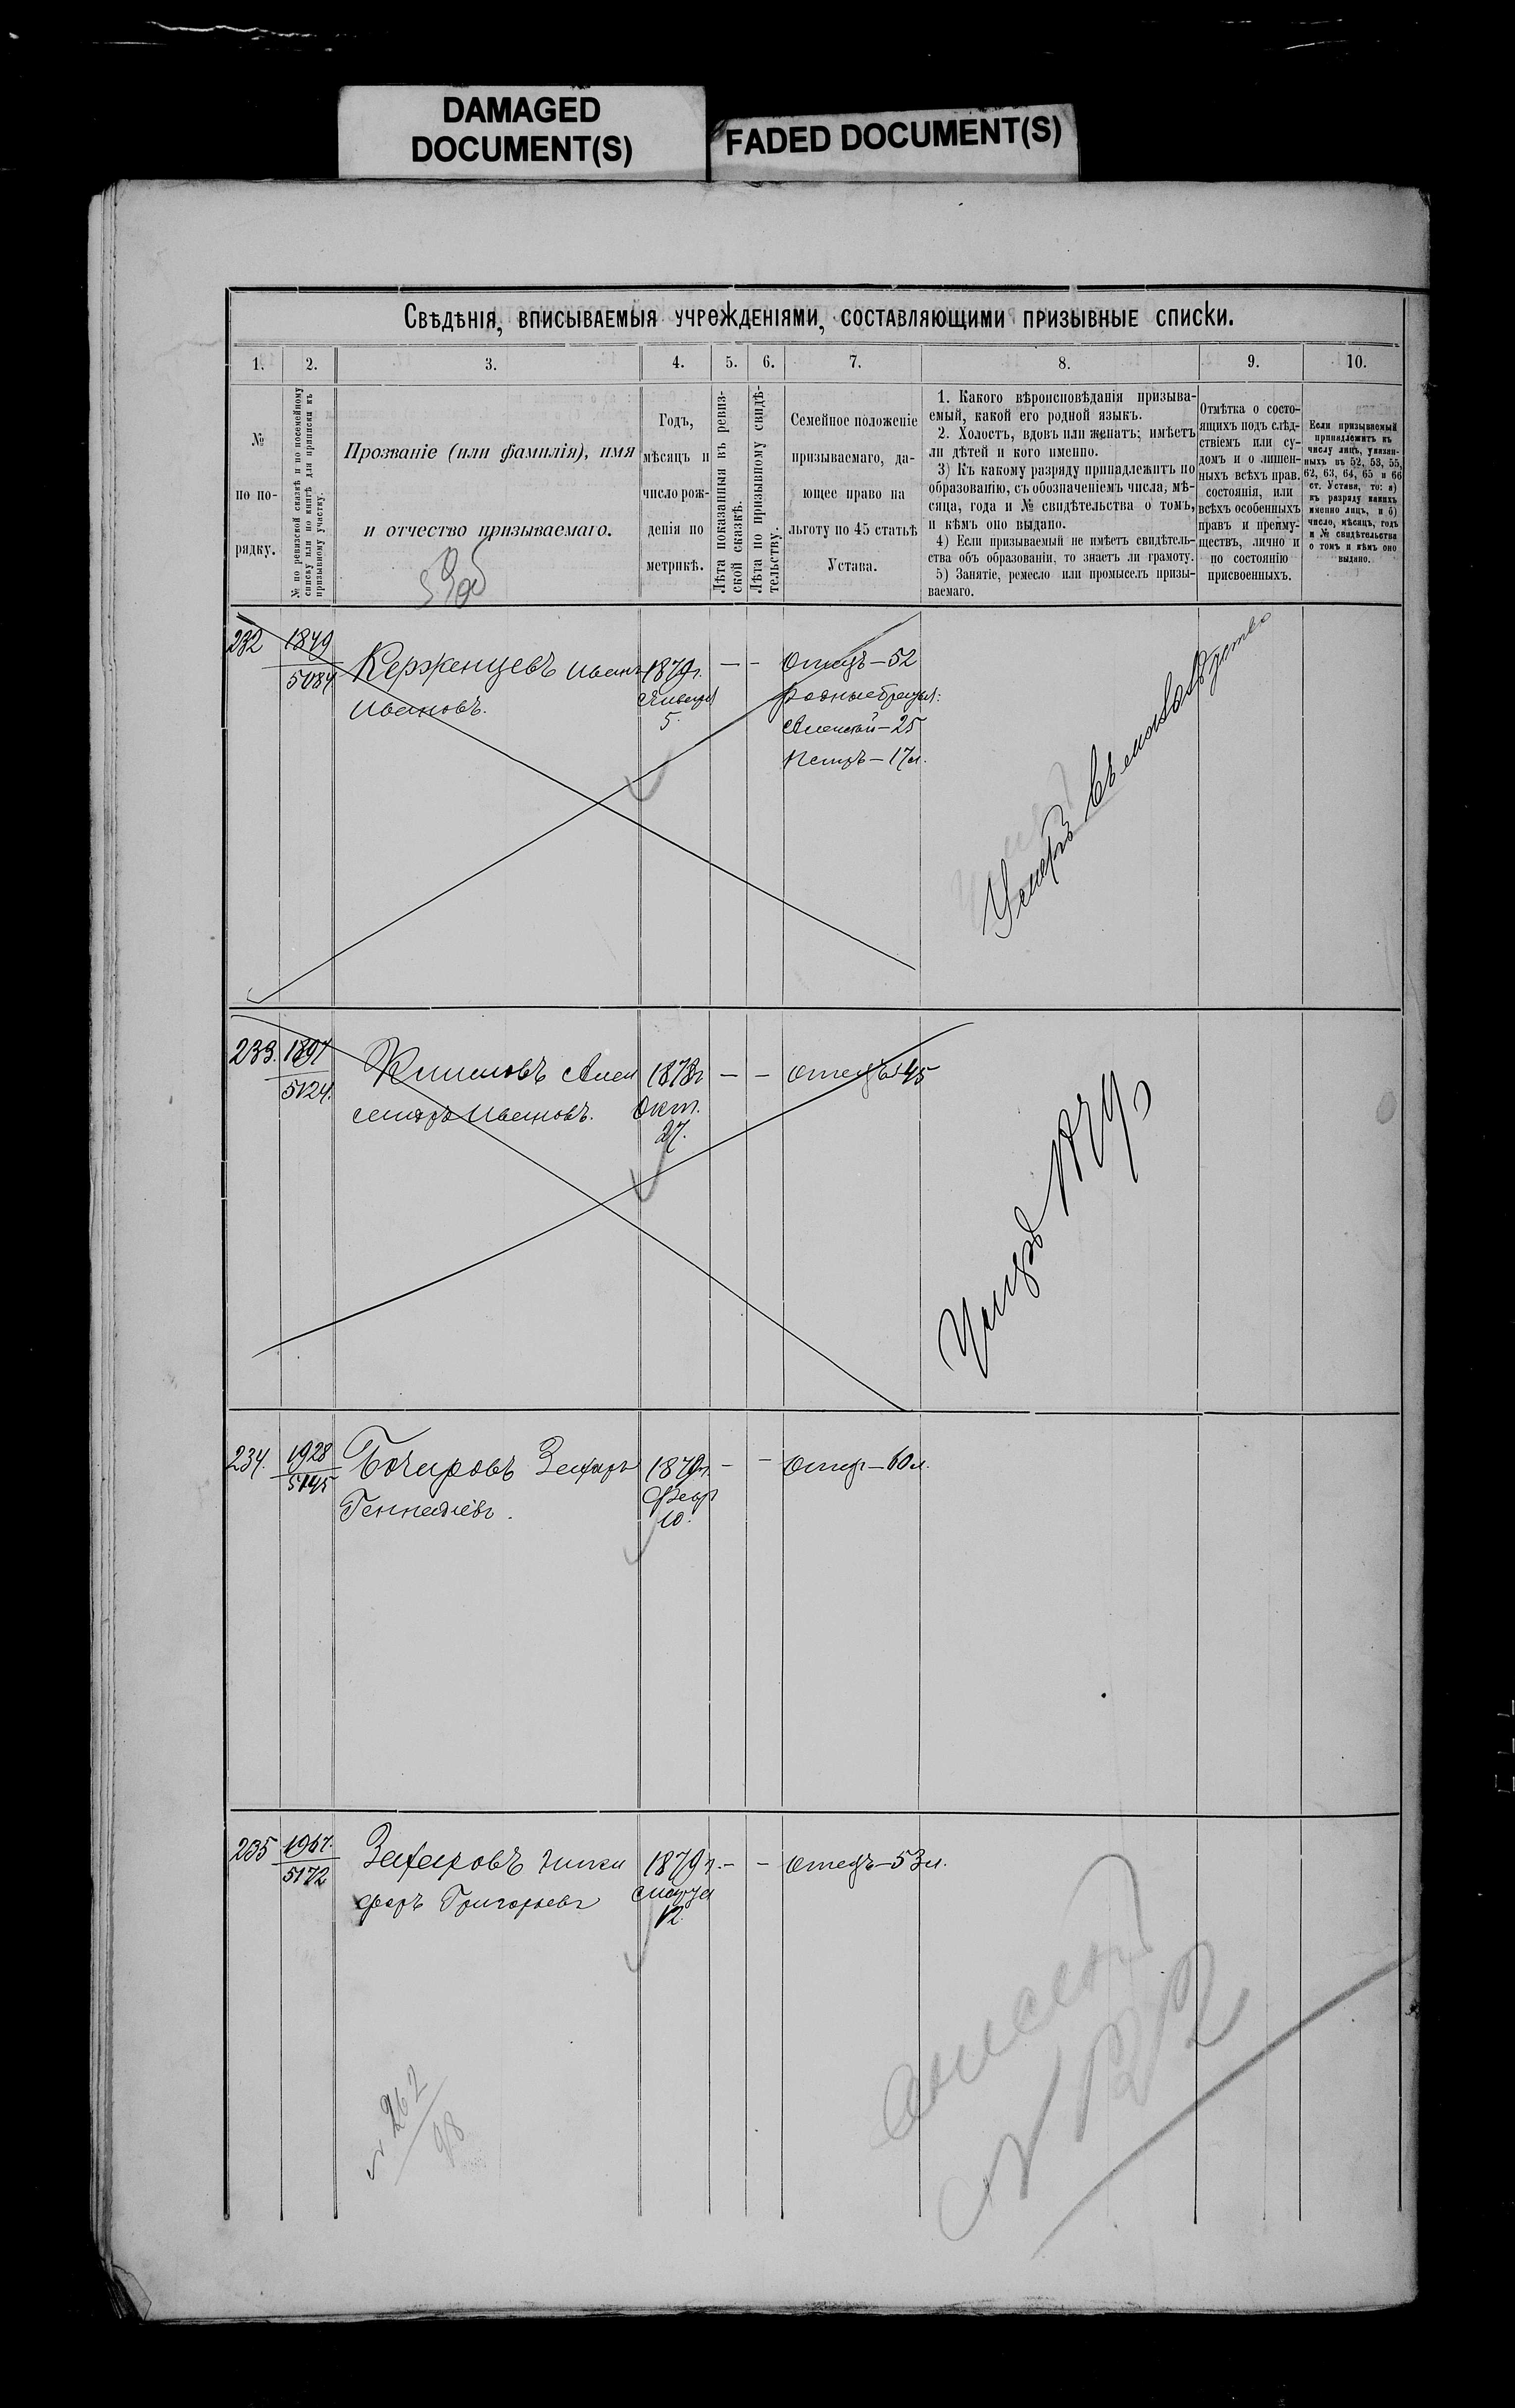 DAMAGED
DOCUMENT(S)
FADED DOCUMENT(S)
Свѣдѣнія, вписываемыя учрежденіями, составляющими призывные списки.
1.
2.
3.
4.
5.
6.
7.
8.
9.
10.
№
по по-
рядку.
№ по ревизской сказкѣ и по посемейному
списку или по книгѣ для приписки къ
призывному участку.
Прозваніе (или фамилія), имя
и отчество призываемаго.
Годъ,
мѣсяцъ и
число рож-
денія по
метрикѣ.
Лѣта показанныя въ ревиз-
ской сказкѣ.
Лѣта по призывному свидѣ-
тельству.
Семейное положеніе
призываемаго, да-
ющее право на
льготу по 45 статьѣ
Устава.
1. Какого вѣроисповѣданія призыва-
емый, какой его родной языкъ.
2. Холостъ, вдовъ или женатъ; имѣетъ
ли дѣтей и кого именно.
3) Къ какому разряду принадлежитъ по
образованію, съ обозначеніемъ числа, мѣ-
сяца, года и № свидѣтельства о томъ,
и кѣмъ оно выдано.
4) Если призываемый не имѣетъ свидѣтель-
ства объ образованіи, то знаетъ ли грамоту.
5) Занятіе, ремесло или промыселъ призы-
ваемаго.
Отмѣтка о состо-
ящихъ подъ слѣд-
ствіемъ или су-
домъ и о лишен-
ныхъ всѣхъ прав.
состоянія, или
всѣхъ особенныхъ
правъ и преиму-
ществъ, лично и
по состоянію
присвоенныхъ.
Если призываемый
принадлежитъ къ
числу лицъ, указан-
ныхъ въ 52, 53, 55,
62, 63, 64, 65 и 66
ст. Устава, то: а)
къ разряду какихъ
именно лицъ, и б)
число, мѣсяцъ, годъ
и № свидѣтельства
о томъ и кѣмъ оно
выдано.
232
1849
5084
Керженцевъ Иванъ
Ивановъ.
1879г.
Января
5.
— —
Отецъ—52
родные братья:
Алексѣй—25
Петръ—17л.
Умеръ въ малолѣтствѣ
233.
1897
5124.
Климовъ Алек
сандръ Ивановъ.
1878г
Окт.
27.
— —
Отецъ 45
Умеръ
234.
1928
5145
Бочаровъ Захаръ
Геннадіевъ.
1879г.
Февр
10.
— —
Отецъ—60л.
235
1967.
5172
Захаровъ Ники
форъ Григорьевъ
1879г.
Марта
12.
— —
Отецъ—53л.
№ 262
98